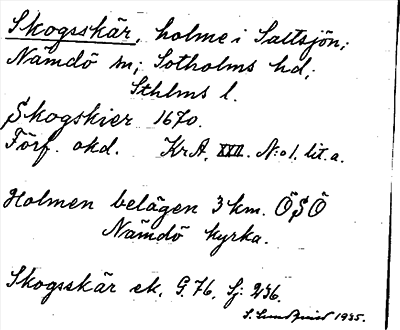 Skogsskär, holme i Saltsjön;
Nämdö sn; Sotholms hd;
Sthlms l.
Skogskier 1670.
Förf. okd. KrA, XXII. N:o 1. lit. a.
Holmen belägen 3 km. ÖSÖ
Nämdö kyrka.
Skogsskär ek. G. 76, Sj: 236.
S. Lundqvist 1935.